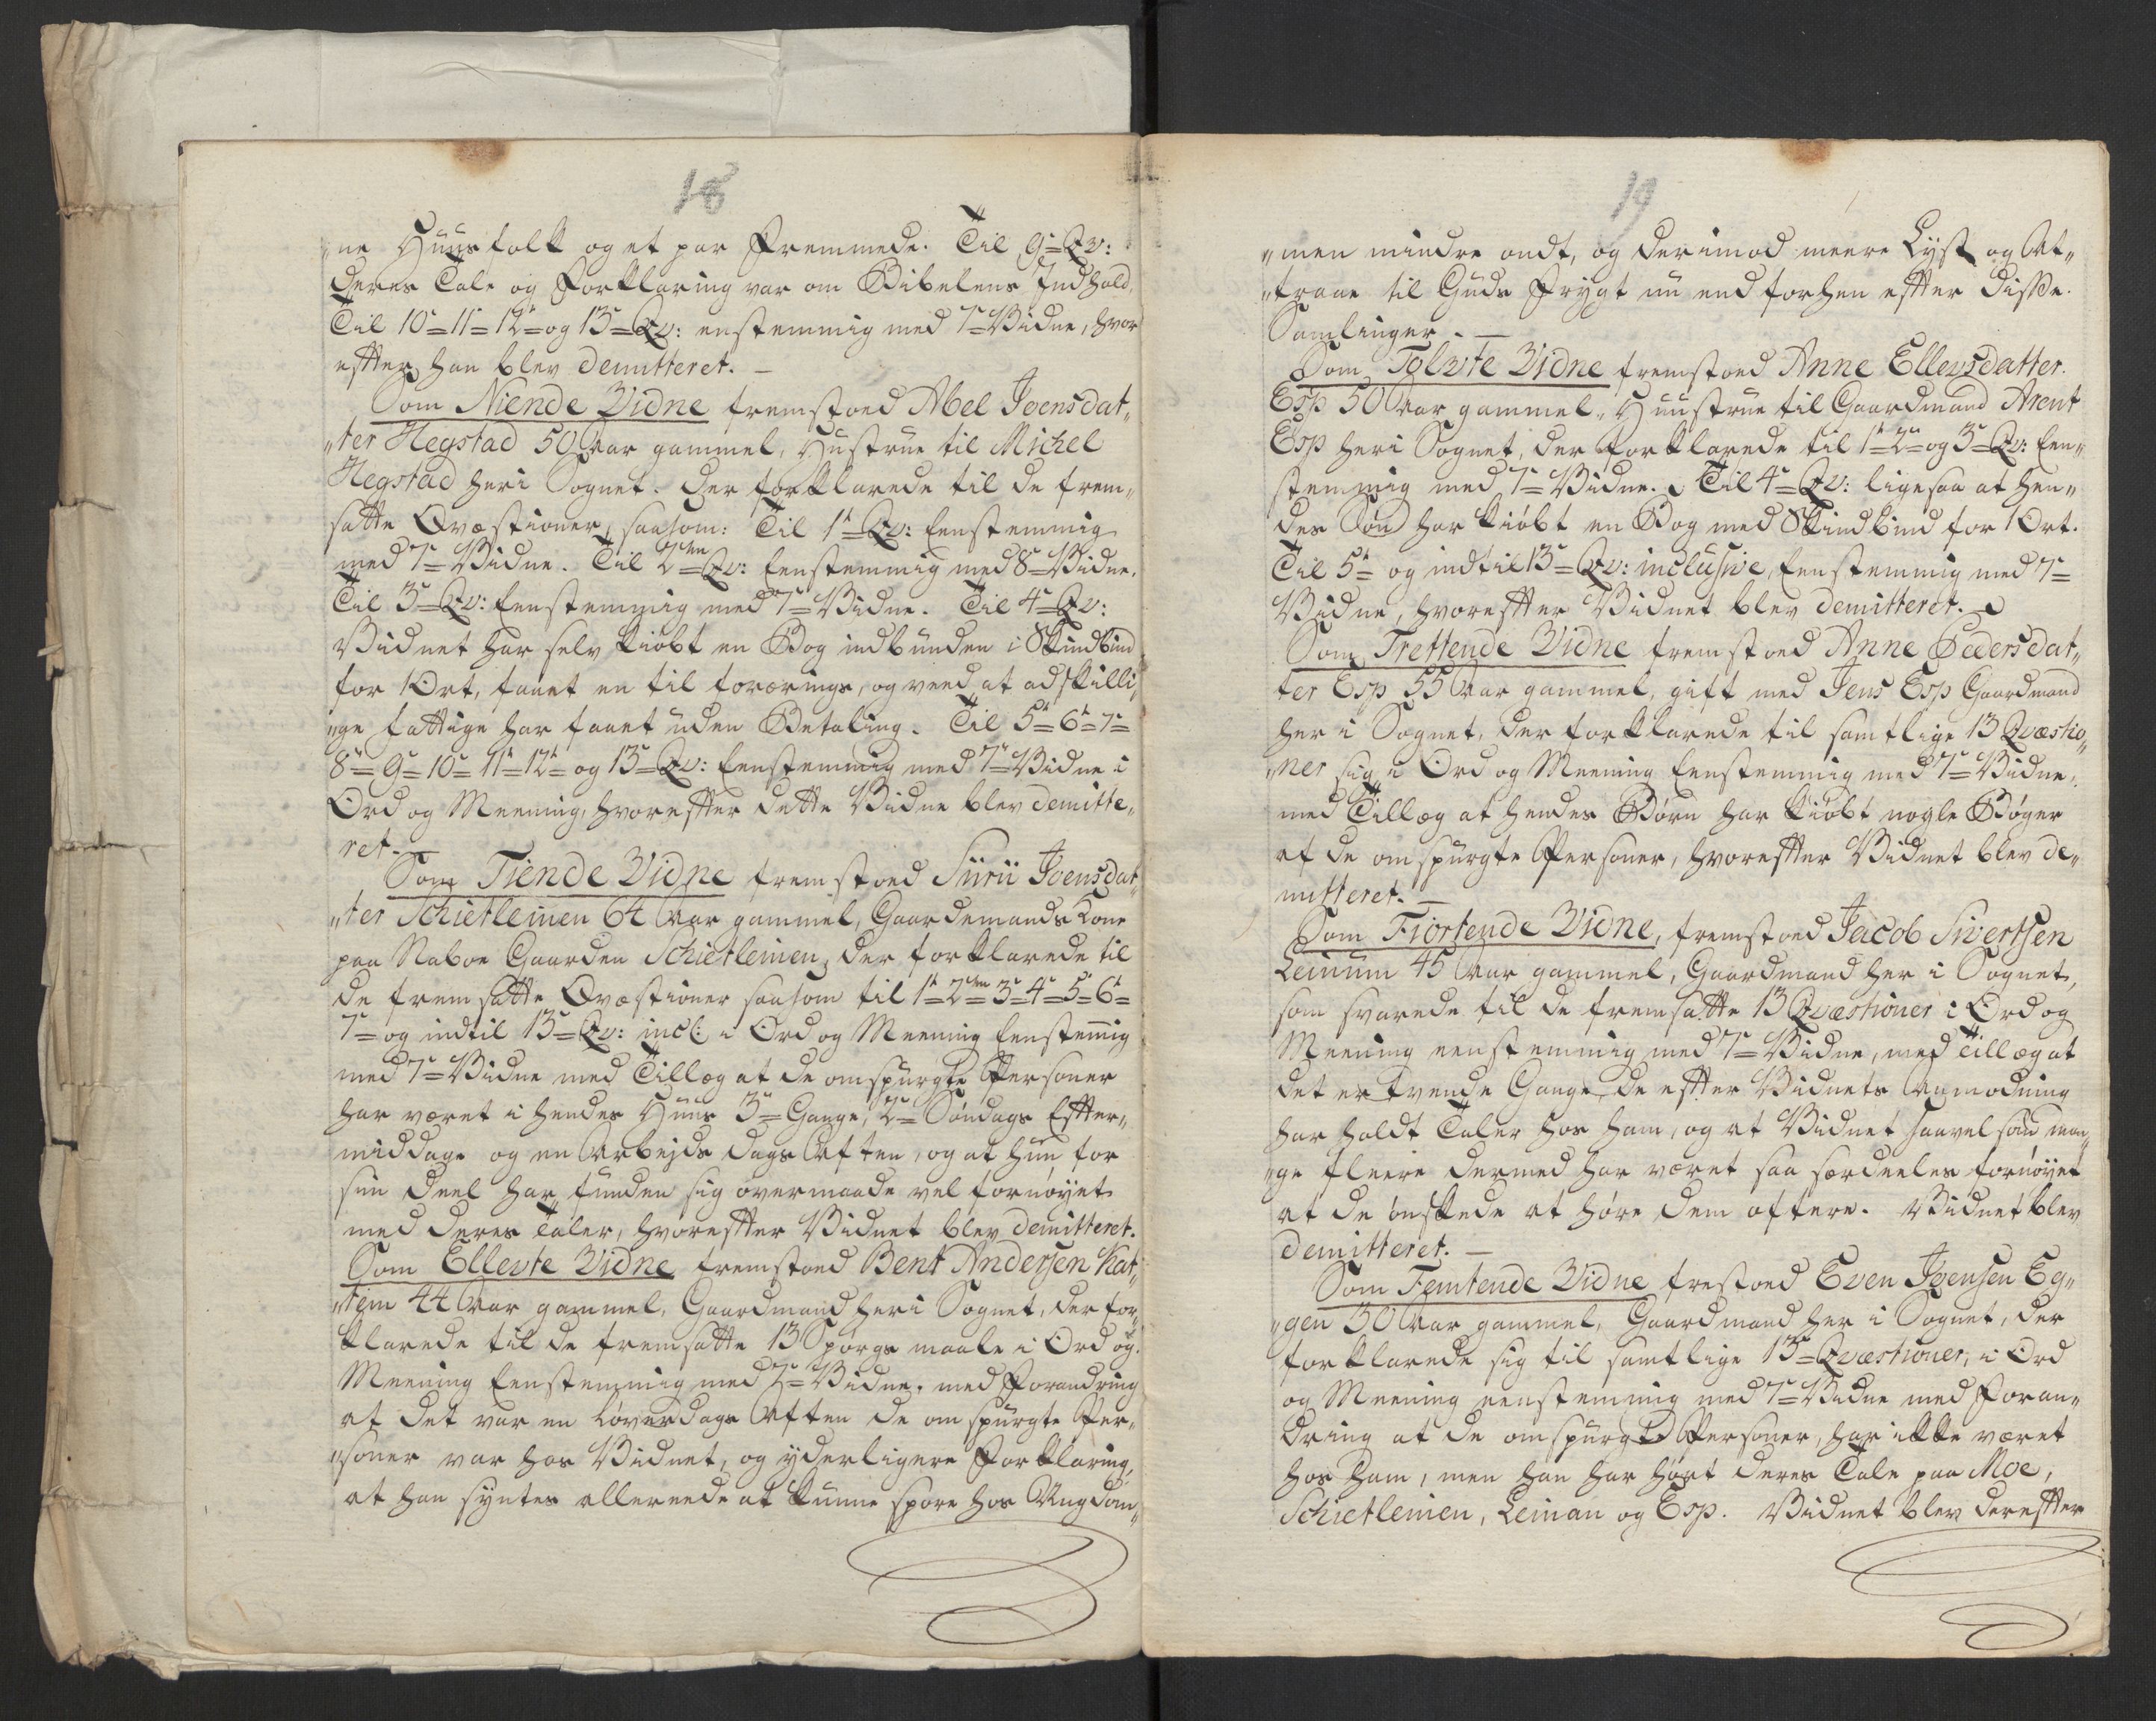 18
ne Huusfolk og et par Fremmede. Til 9de Qv:
deres Tale og Forklaring var om Bibelens Indhold.
Til 10de 11te 12te og 13de Qv: enstemmig med 7de Vidne, hvor
efter han blev demitteret. —
Som Niende Vidne fremstoed Abel Joensdat„
„ter Hegstad 50 Aar gammel, Hustrue til Michel
Hegstad her i Sognet. Der forklarede til de frem„
satte Qvæstioner, saasom: Til 1te Qv: Eenstemmig
med 7de Vidne. Til 2den Qv: Eenstemmig med 8de Vidne.
Til 3de Qv: Eenstemmig med 7de Vidne. Til 4de Qv:
Vidnet har selv kiøbt en Bog indbunden i Skindbind
for 1 Ort, faaet en til forærings, og veed at adskilli„
„ge fattige har faaet uden Betaling. Til 5te 6te 7de
8de 9de 10de 11te 12te og 13de Qv: Eenstemmig med 7de Vidne i
Ord og Meening, hvorefter dette Vidne blev demitte„
ret. —
Som Tiende Vidne fremstoed Siirii Joensdat„
„ter Schietleinen 64 Aar gammel, Gaardemands Kone
paa Naboe Gaarden Schietleinen, der forklarede til
de fremsatte Qvæstioner saasom til 1te 2den 3de 4de 5te 6te
7de og indtil 13de Qv: incl: i Ord og Meening Eenstemig
med 7de Vidne med Tillæg at de omspurgte Personer
har været i hendes Huus 3de Gange, 2de Søndags Efter„
middage og en Arbejds Dags Aften, og at hun for
sin Deel har funden sig overmaade vel fornøyet
med deres Taler, hvorefter Vidnet blev demitteret.
Som Ellevte Vidne fremstoed Bent Andersen Kat„
„tem 44 Aar gammel, Gaardmand her i Sognet, der for„
klarede til de fremsatte 13 Spørgsmaale i Ord og
Meening Eenstemmig med 7de Vidne, med Forandring
at det var en Løverdags Aften de omspurgte Per„
„soner var hos Vidnet, og yderligere Forklaring,
at han syntes allereede at kunne spore hos Ungdom„
19
„men mindre ondt, og derimod meere Lyst og At„
„traae til Guds Frygt nu end forhen efter disse
Samlinger. —
Som Tolvte Vidne fremstoed Anne Ellevsdatter
Esp 50 Aar gammel, Huustrue til Gaardmand Arent
Esp her i Sognet, der forklarede til 1te 2den og 3de Qv: Een„
stemmig med 7de Vidne. Til 4de Qv: ligesaa at hen„
des Søn har kiøbt en Bog med Skindbind for 1 Ort.
Til 5te og indtil 13de Qv: inclusive, Eenstemmig med 7de
Vidne, hvorefter Vidnet blev demitteret.
Som Trettende Vidne fremstoed Anne Pedersdat„
ter Esp 55 Aar gammel, gift med Jens Esp Gaardmand
her i Sognet, der forklarede til samtlige 13 Qvæstio„
„ner sig i Ord og Meening Eenstemmig med 7de Vidne,
med Tillæg at hendes Børn har kiøbt nogle Bøger
af de omspurgte Personer, hvorefter Vidnet blev de„
mitteret. —
Som Fiortende Vidne, fremstoed Jacob Sivertsen
Leinum 45 Aar gammel, Gaardmand her i Sognet,
som svarede til de fremsatte 13 Qvæstioner i Ord og
Meening eenstemmig med 7de Vidne, med Tillæg at
det er tvende Gange de efter Vidnets Anmodning
har holdt Taler hos ham, og at Vidnet saavel som man„
„ge fleere dermed har været saa særdeeles fornøyet
at de ønskede at høre dem oftere. Vidnet blev
demitteret. —
Som Femtende Vidne frestoed Even Joensen Eg„
„gen 30 Aar gammel, Gaardmand her i Sognet, der
forklarede sig til samtlige 13de Qvæstioner, i Ord
og Meening eenstemmig med 7de Vidne med Foran„
dring at de omspurgte Personer, har ikke været
hos ham, men han har hørt deres Tale paa Moe,
Schietleinen, Leinan og Esp. Vidnet blev derefter